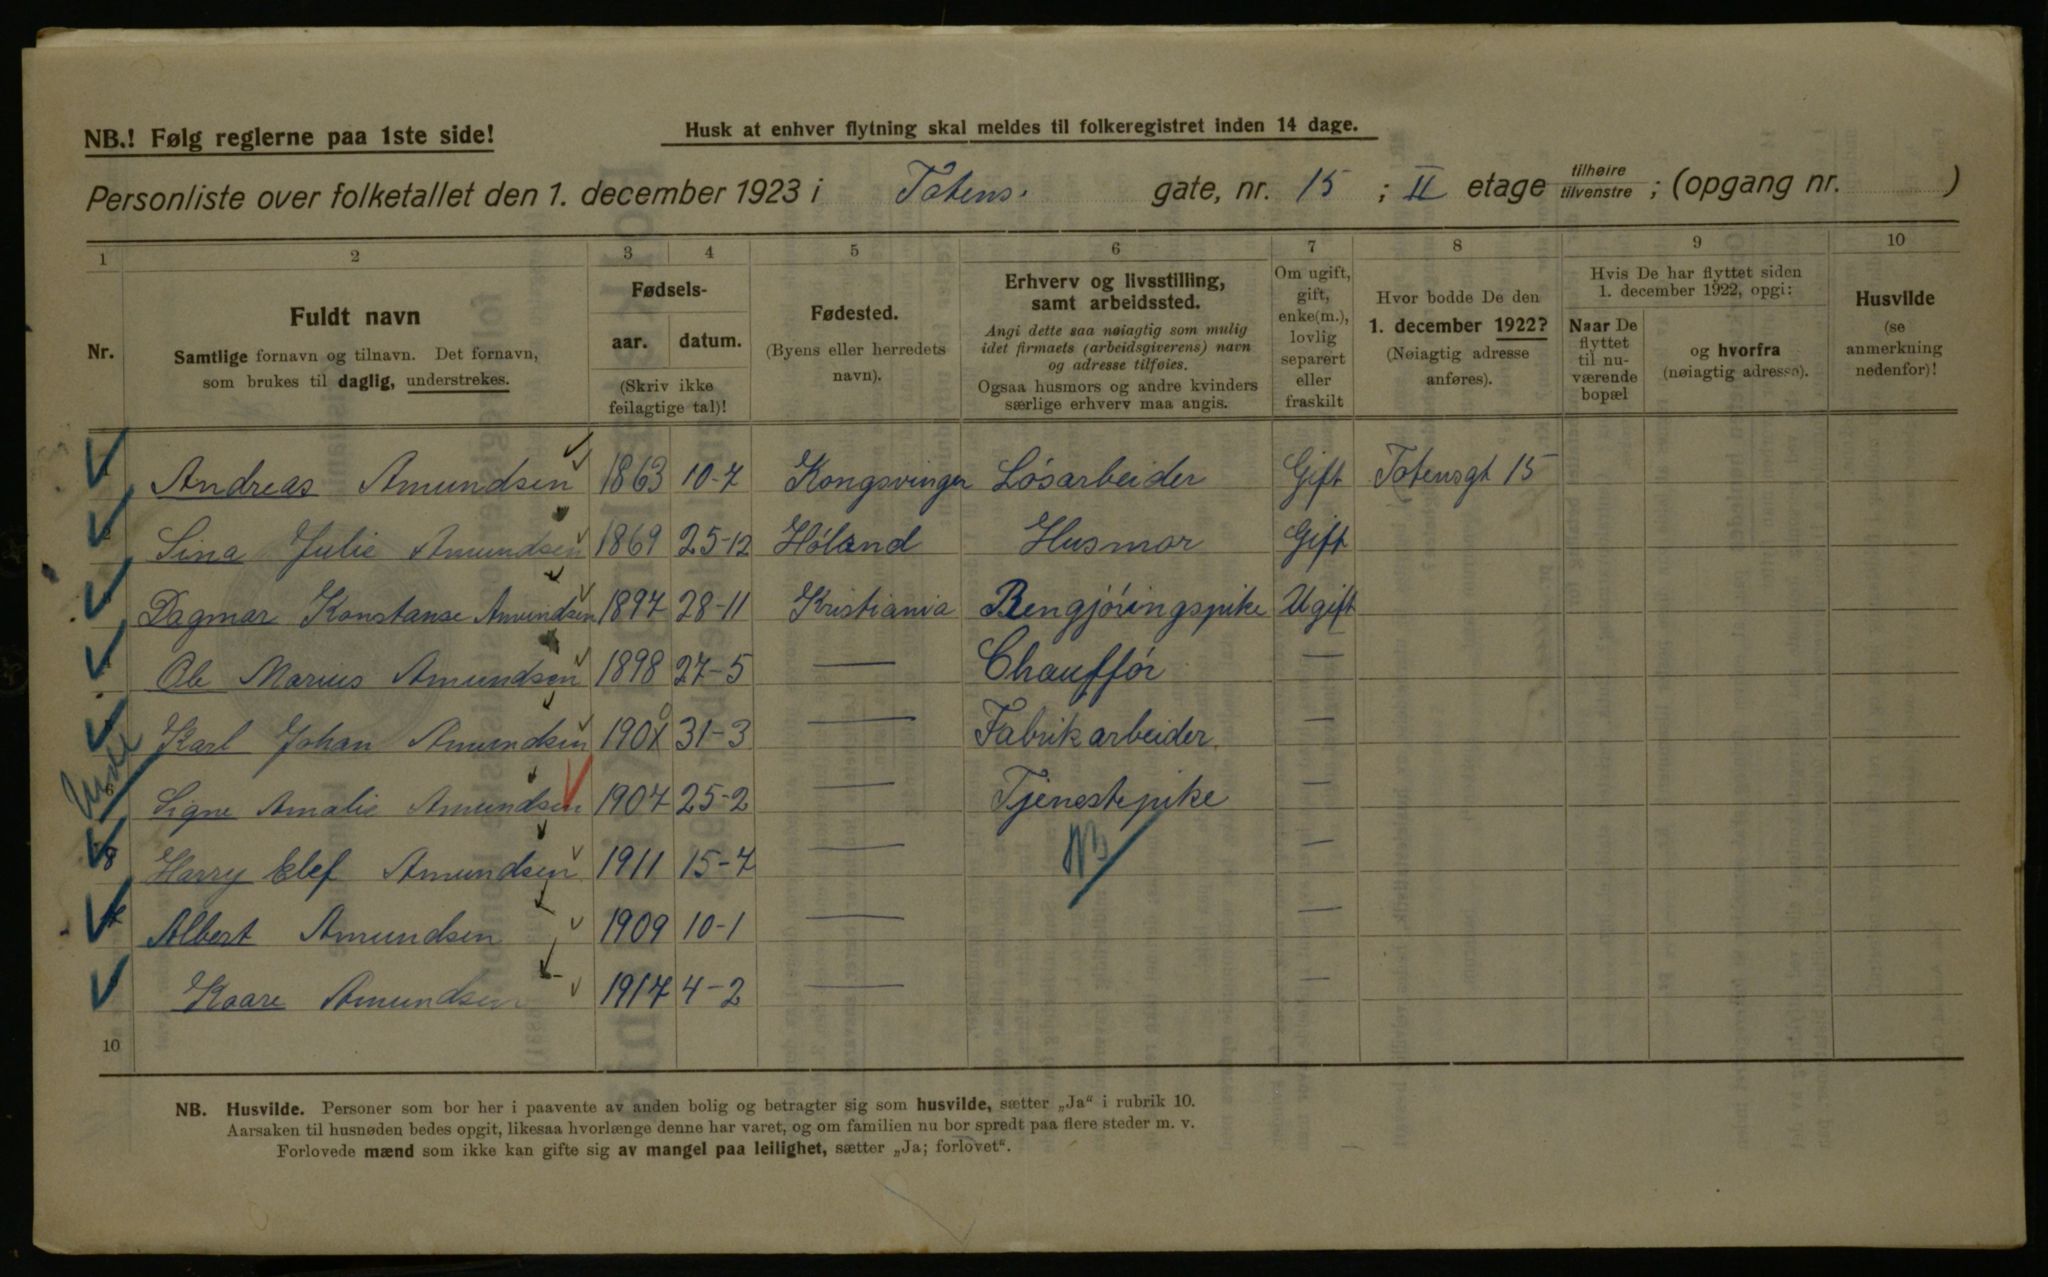 NB.! Følg reglerne paa 1ste side!
Husk at enhver flytning skal meldes til folkeregistret inden 14 dage.
Personliste over folketallet den 1. december 1923 i Totens. gate, nr. 15 ; II etage tilhøire tilvenstre ; (opgang nr. )
1 2 3 4 5 6 7 8 9 10
Nr.
Fuldt navn
Samtlige fornavn og tilnavn. Det fornavn,
som brukes til daglig, understrekes.
Fødsels-
aar. datum.
(Skriv ikke
feilagtige tal)!
Fødested.
(Byens eller herredets
navn).
Erhverv og livsstilling,
samt arbeidssted.
Angi dette saa nøiagtig som mulig
idet firmaets (arbeidsgiverens) navn
og adresse tilføies.
Ogsaa husmors og andre kvinders
særlige erhverv maa angis.
Om ugift,
gift,
enke(m.),
lovlig
separert
eller
fraskilt
Hvor bodde De den
1. december 1922?
(Nøiagtig adresse
anføres).
Hvis De har flyttet siden
1. december 1922, opgi:
Naar De
flyttet
til nu-
værende
bopæl
og hvorfra
(nøiagtig adresse).
Husvilde
(se
anmerkning
nedenfor)!
Andreas Amundsen 1863 10-7 Kongsvinger Løsarbeider Gift Totensgt 15
Lina Julie Amundsen 1869 25-12 Høland Husmor Gift
Dagmar Konstanse Amundsen 1897 28-11 Kristiania Rengjøringspike Ugift
Ole Marius Amundsen 1898 27-5 — Chauffør —
Karl Johan Amundsen 190 31-3 — Fabrikarbeider. —
6 Signe Amalie Amundsen 1907 25-2 — Tjenestepike —
8 Harry Elef Amundsen 1911 15-7 — NB —
Albert Amundsen 1909 10-1 — —
Kaare Amundsen 1917 4-2 — —
10
NB. Husvilde. Personer som bor her i paavente av anden bolig og betragter sig som husvilde, sætter „Ja“ i rubrik 10.
Aarsaken til husnøden bedes opgit, likesaa hvorlænge denne har varet, og om familien nu bor spredt paa flere steder m. v.
Forlovede mænd som ikke kan gifte sig av mangel paa leilighet, sætter „Ja; forlovet“.